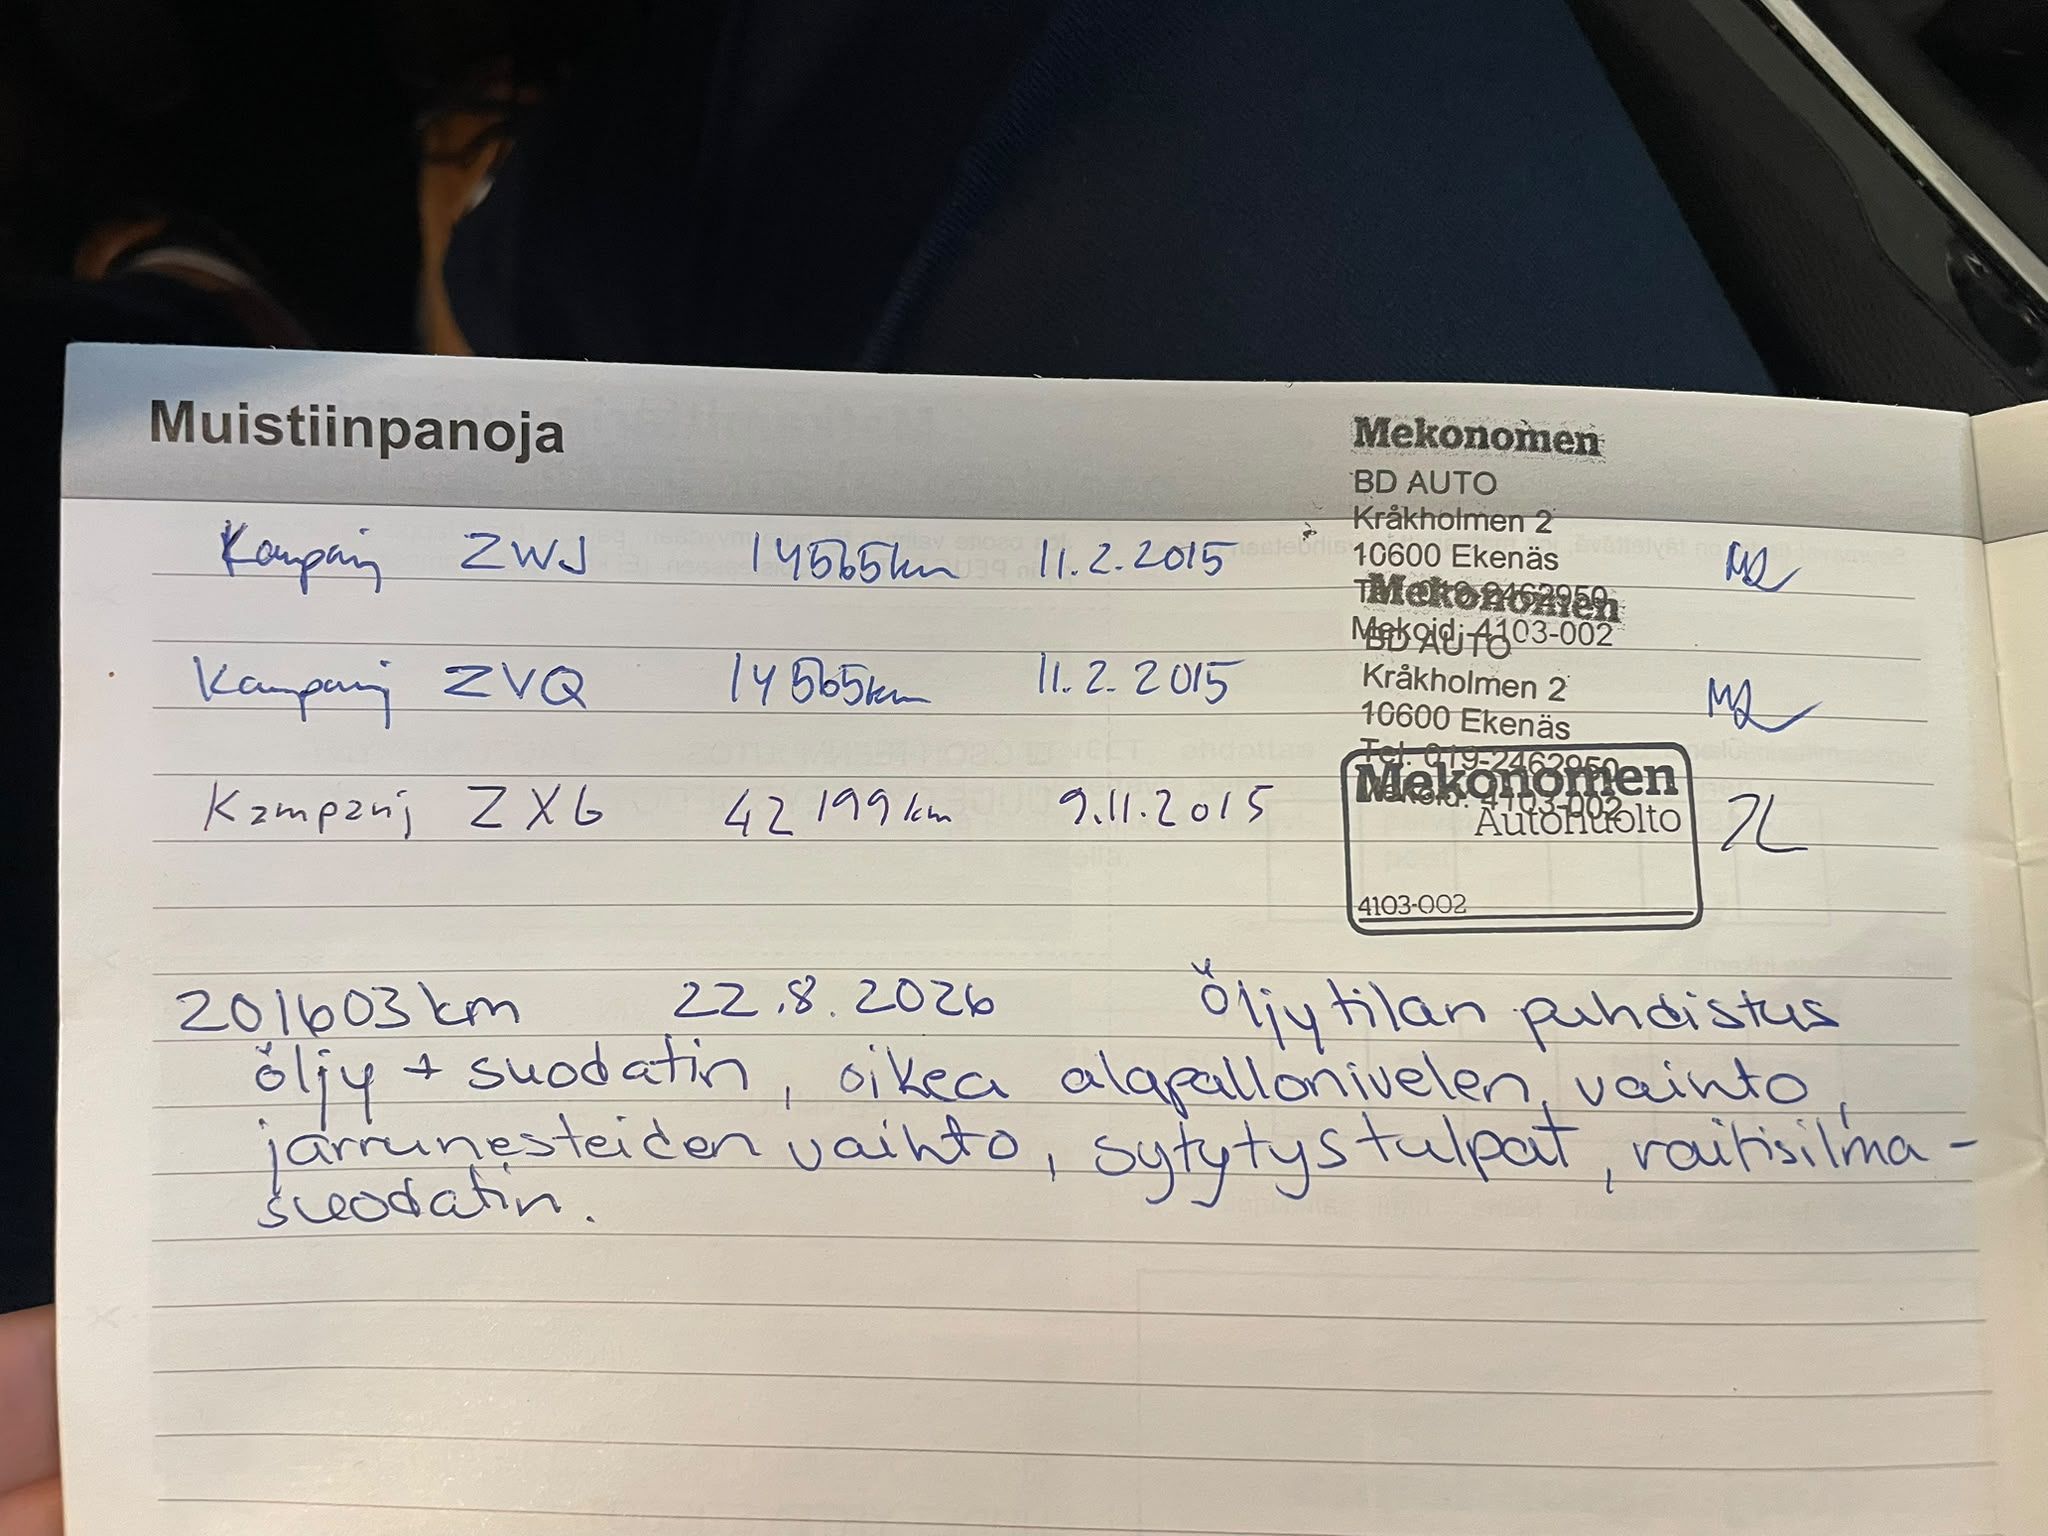 Muistiinpanoja
Mekonomen
BD AUTO
Kråkholmen 2
10600 Ekenäs
Mekoid: 4103-002
Kampanj ZWJ 14565km 11.2.2015
Mekonomen
BD AUTO
Kråkholmen 2
10600 Ekenäs
Tel. 019-2462950
Kampanj ZVQ 14565km 11.2.2015
Mekonomen
Autohuolto
4103-002
Kampanj ZX6 42199km 9.11.2015
201603km 22.8.2026 Öljytilan puhdistus
öljy + suodatin, oikea alapallonivelen vaihto,
jarrunesteiden vaihto, sytytystulpat, raitisilma-
suodatin.